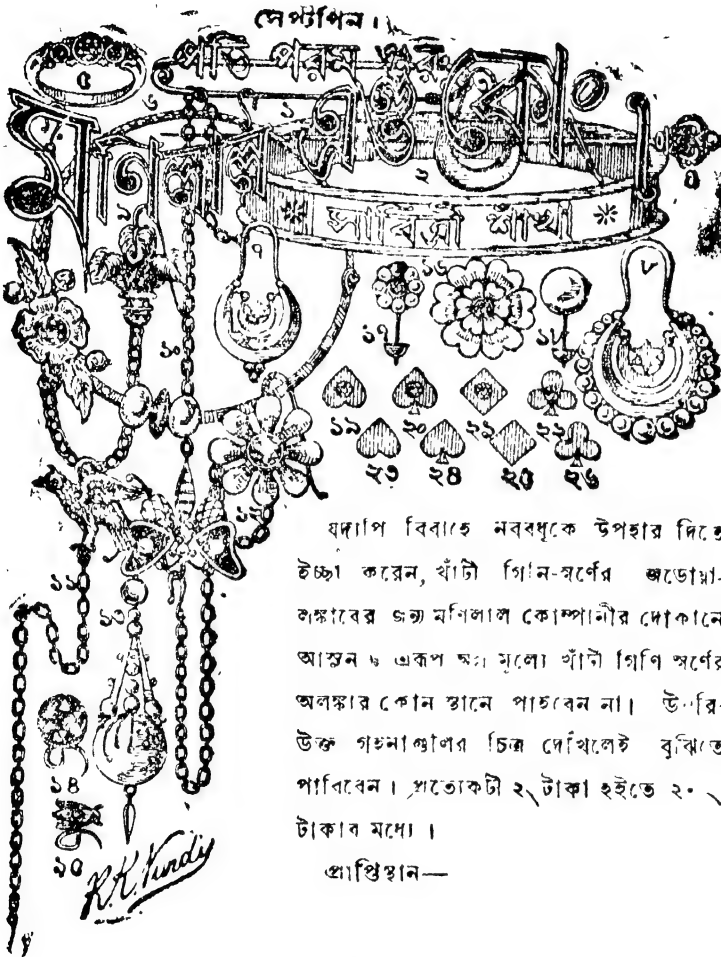 সেপ্টীপিন।
পতি পরম গুরু
মণিলাল এণ্ড কোং
* সাবিত্রী শাঁখা *
১ ২ ৪ ৫ ৬ ৭ ৮ ৯ ১০
১৬ ১৭ ১৮
১৯ ২০ ২১ ২২
২৩ ২৪ ২৫ ২৬
১১ ১২ ১৩ ১৪ ১৫
যদ্যপি বিবাহে নববধূকে উপহার দিতে
ইচ্ছা করেন, খাঁটী গিনি-স্বর্ণের জড়োয়া-
লঙ্কারের জন্য মণিলাল কোম্পানীর দোকানে
আসুন। এরূপ মূল্যে খাঁটী গিণি স্বর্ণের
অলঙ্কার কোন স্থানে পাইবেন না। উপরি-
উক্ত গহনাগুলির চিত্র দেখিলেই বুঝিতে
পারিবেন। প্রত্যেকটী ২৲ টাকা হইতে ২০৲
টাকার মধ্যে।
প্রাপ্তিস্থান—
R.K. Nundy